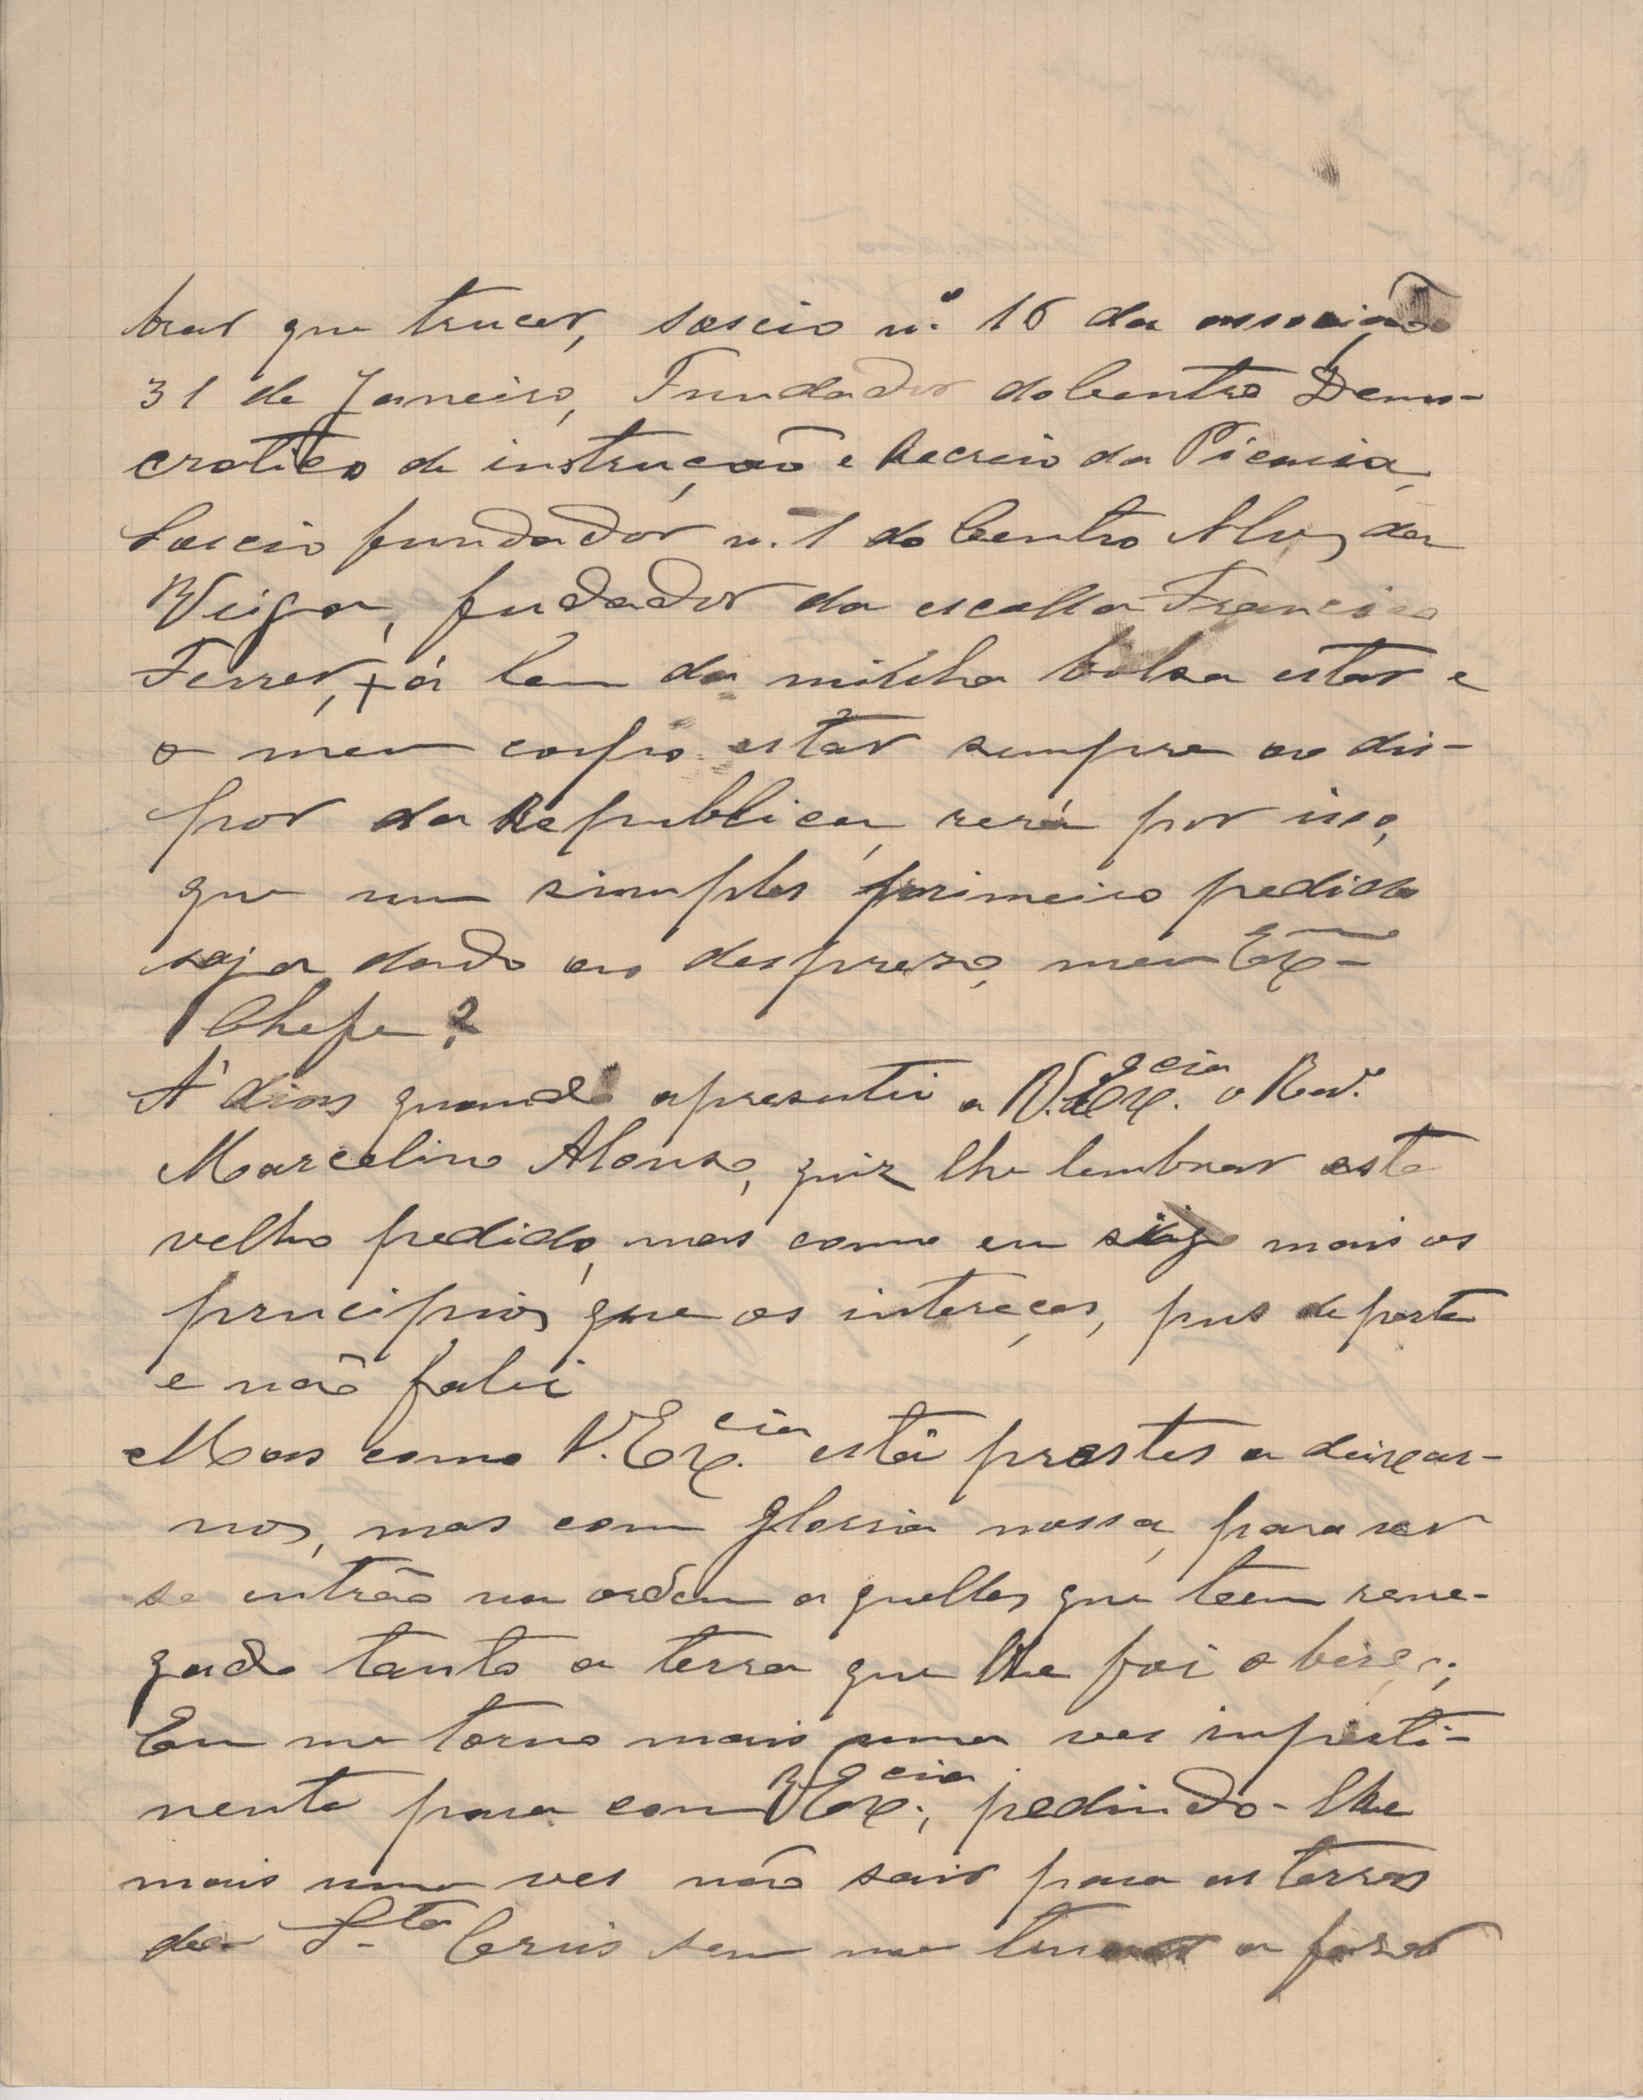 que trucer, soscio n.º 16 da associação
31 de Janeiro, Fundador do Centro Demo-
cratico de instrução e Recreio da Picaria,
Soscio fundador n. 1 do Centro Alves da
Veiga, fudador da escolla Francisco
Ferrer, á lem da minha bolsa estar e
o meu corpo estár sempre ao dis-
por da Republica, será por isso,
que um simples primeiro pedido
seja dado ao despreso, meu Ex.mo
Chefe?
A' dias quando apresentei a V. Ex.cia o Rev.º
Marcelino Alonso, quiz lhe lembrar este
velho pedido, mas como eu sigo mais os
principios que os intereços, pus de parte
e não falei
Mas como V. Ex.cia está prestes a deixar-
nos, mas com gloria nossa, para ver
se entrão na ordem aquelles que teem rene-
gado tanto a terra que lhe foi o berço;
Eu me torno mais uma ves impreti-
nente para com V. Ex.cia; pedindo-lhe
mais uma ves não sair para as terras
de S.ta Crus sem me tornar a fazer